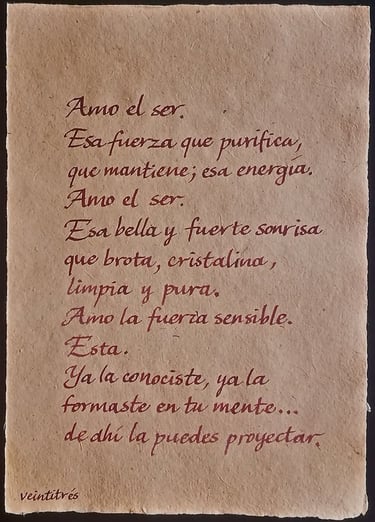 Amo el ser.
Esa fuerza que purifica,
que mantiene; esa energía.
Amo el ser.
Esa bella y fuerte sonrisa
que brota, cristalina,
limpia y pura.
Amo la fuerza sensible.
Esta.
Ya la conociste, ya la
formaste en tu mente...
de ahí la puedes proyectar.
veintitrés